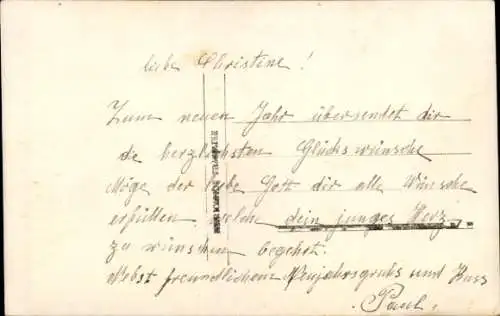 liebe Christine!
Zum neuen Jahr übersendet dir
die herzlichsten Glückswünsche
Möge der liebe Gott dir alle Wünsche
erfüllen welche dein junges Herz
zu wünschen begehrt.
Nebst freundlichen Neujahrsgruhs und Kuss
Paul.